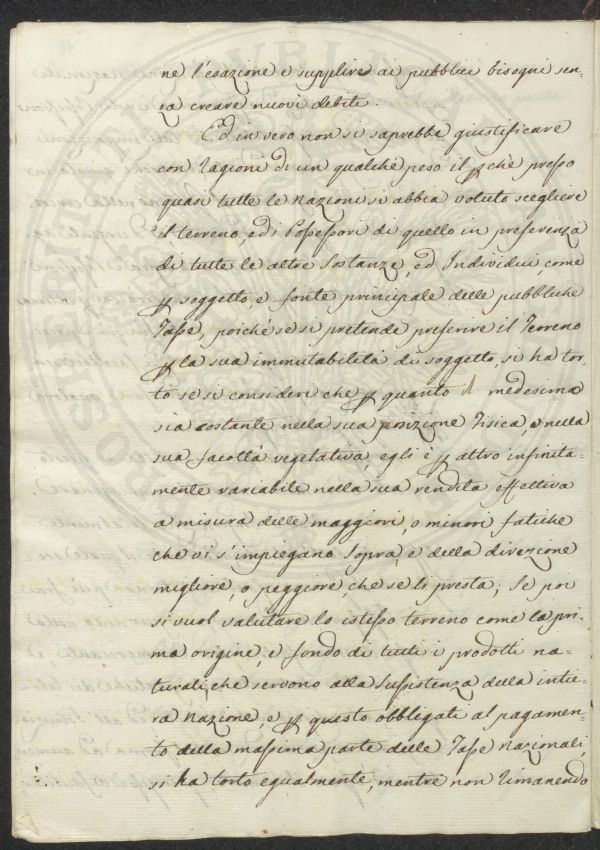 ne l'esazione e supplire ai pubblici bisogni sen-
za creare nuovi debiti.
Ed in vero non si saprebbe giustificare
con ragioni di un qualche peso il ꝑ che presso
quasi tutte le Nazioni si abbia voluto scegliere
il terreno, ed i Possessori di quello in preferenza
di tutte le altre Sostanze, ed Individui, come
ꝑ soggetto, e fonte principale delle pubbliche
Tasse, poiché se si pretende preferire il Terreno
ꝑ la sua immutabilità di soggetto, si ha tor-
to se si consideri che ꝑ quanto il medesimo
sia costante nella sua posizione Fisica, e nella
sua facoltà vegetativa, egli è ꝑ altro infinita-
mente variabile nella sua rendita effettiva
a misura delle maggiori, o minori fatiche
che vi s'impiegano sopra, e della direzione
migliore, o peggiore, che se li presta; Se poi
si vuol valutare lo istesso terreno come la pri-
ma origine, e fondo di tutti i prodotti na-
turali, che servono alla Sussistenza della intie-
ra Nazione, e ꝑ questo obbligati al pagamen-
to della massima parte delle Tasse Nazionali,
si ha torto egualmente, mentre non rimanendo